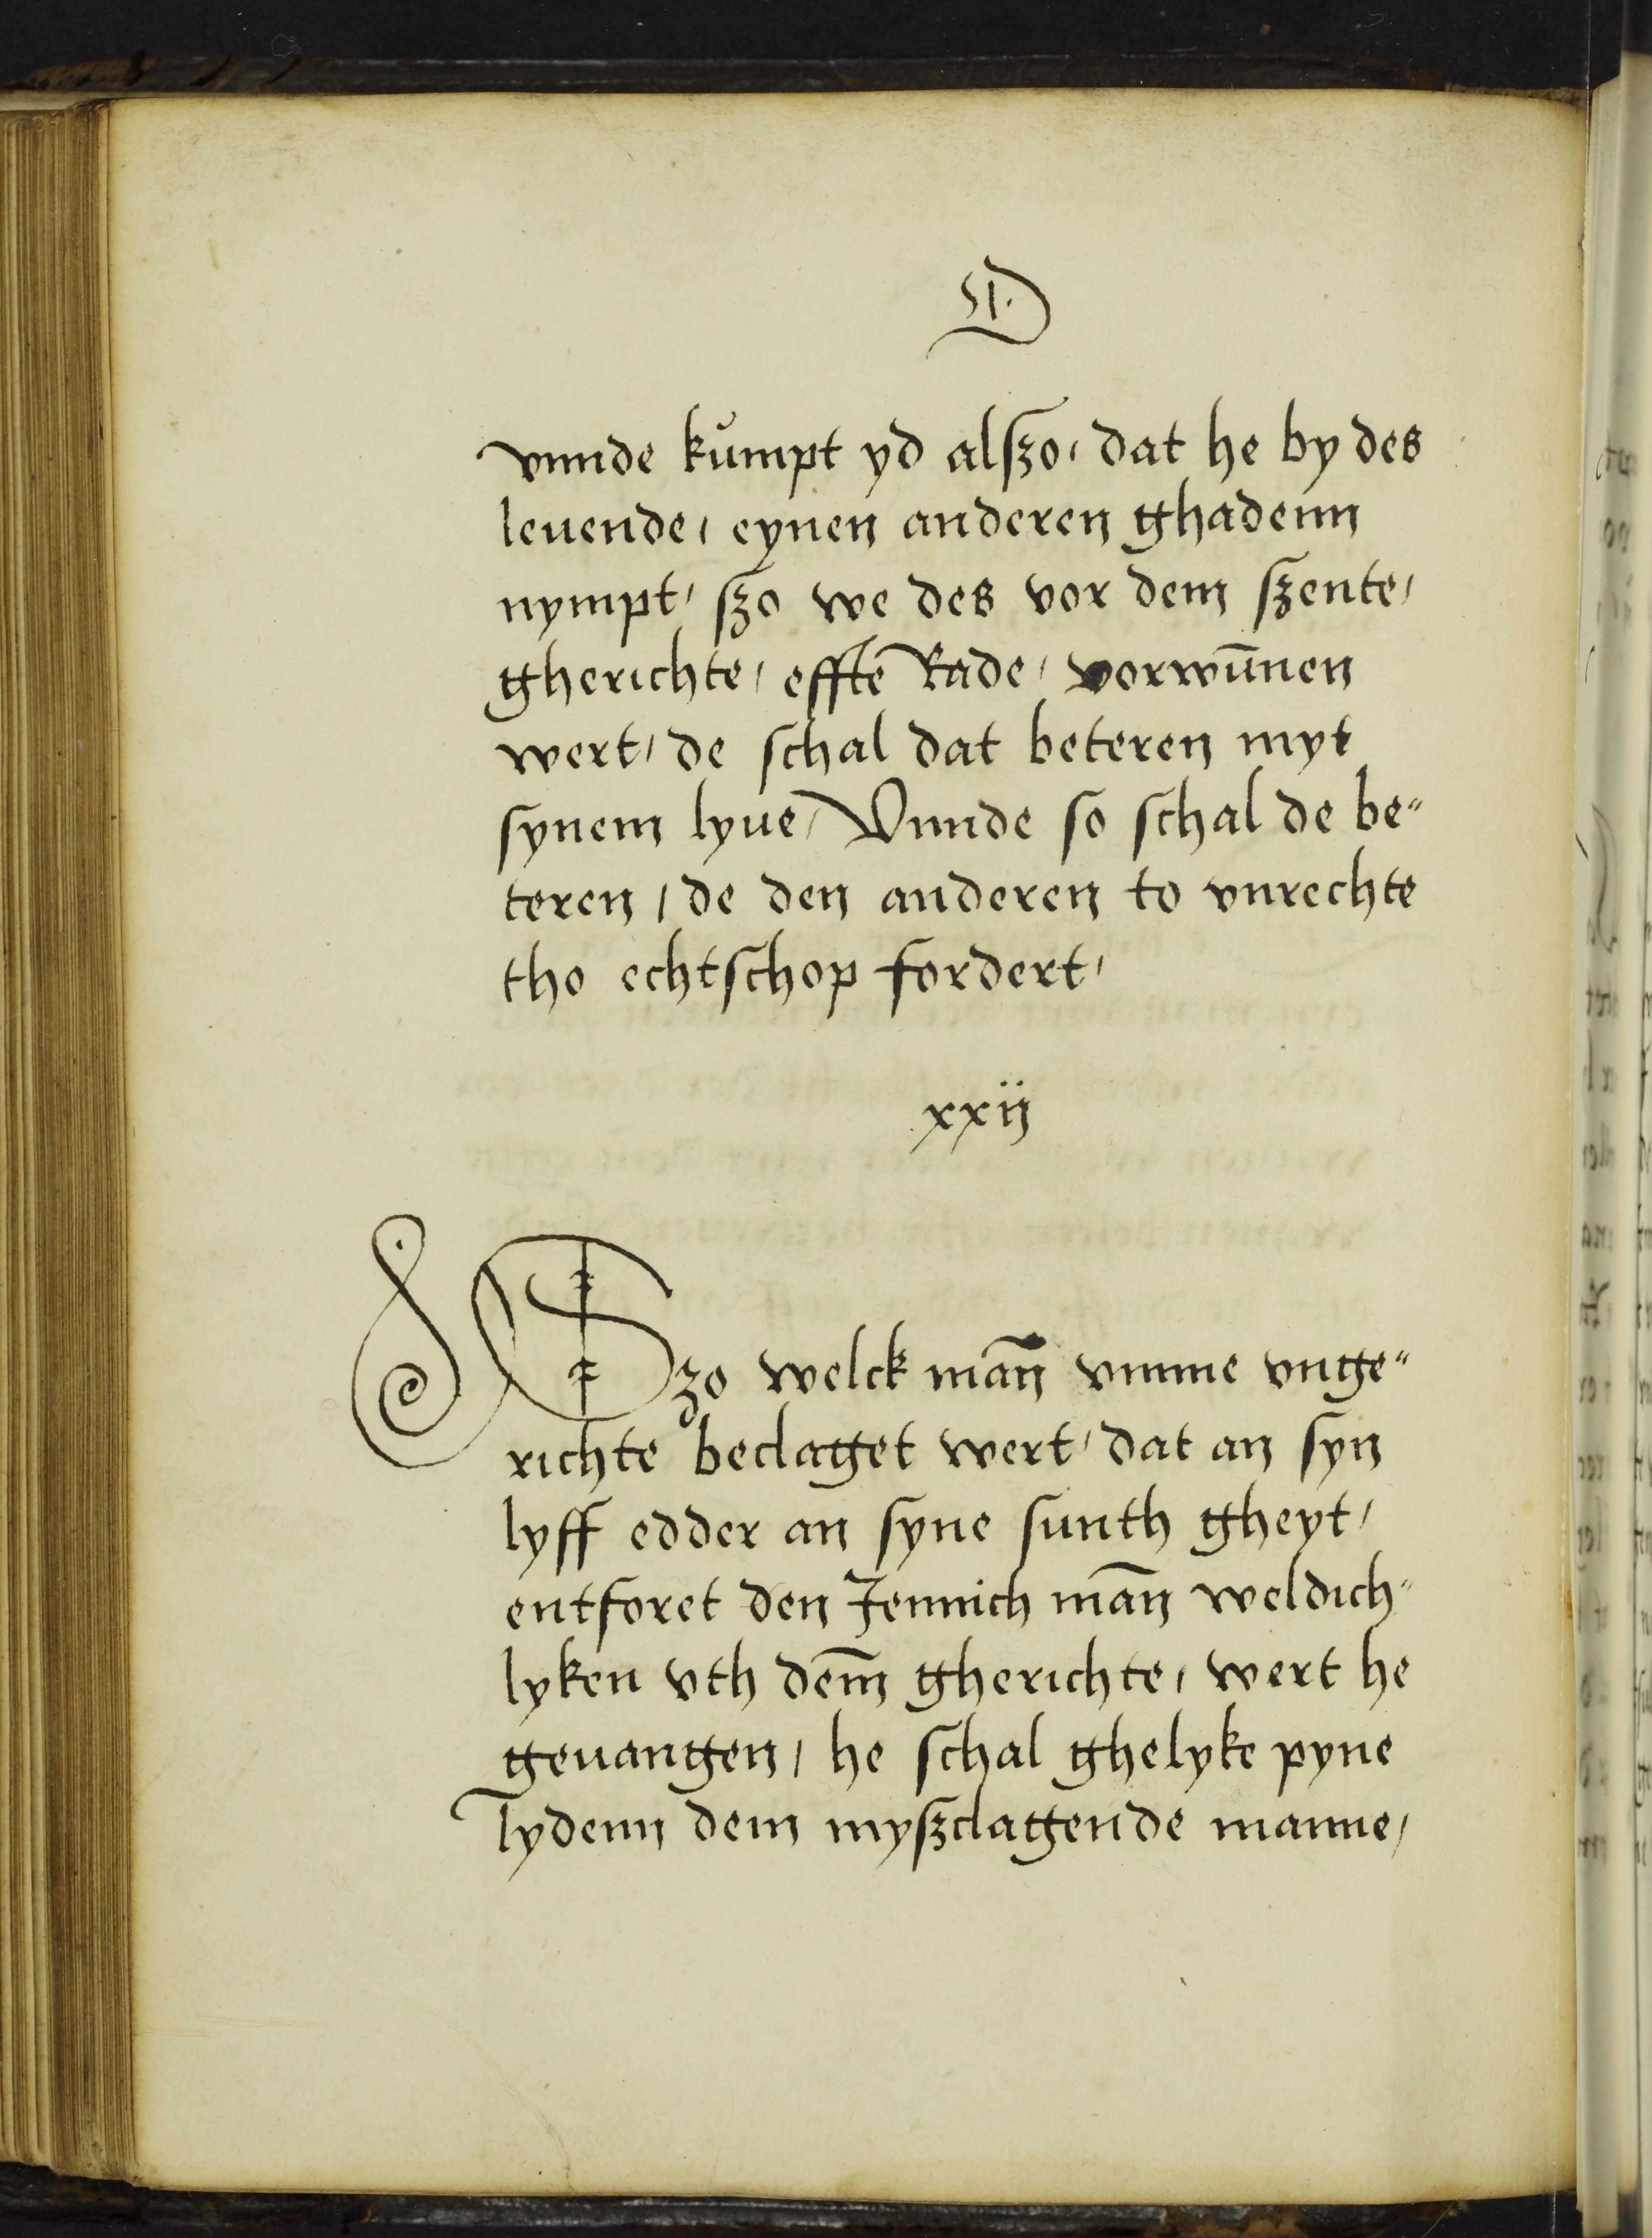 vnnde kůmpt yd alſzo, dat he by des
leuende, eynen anderen ghadenn
nympt, ſzo we des vor dem ſzente,
gherichte, effte Rade, vorwūnen
wert, de ſchal dat beteren myt
ſynem lyue, Vnnde ſo ſchal de be"
teren, de den anderen to vnrechte
tho echtſchop fordert,
xxij
Szo welck mañ vmme vnge"
richte beclaget wert, dat an ſyn
lyff edder an ſyne ſunth gheyt,
entforet den Jennich mañ weldich"
lyken vth dem̄ gherichte, wert he
geuangen, he ſchal ghelyke pyne
lydenn dem myſzclagende manne,